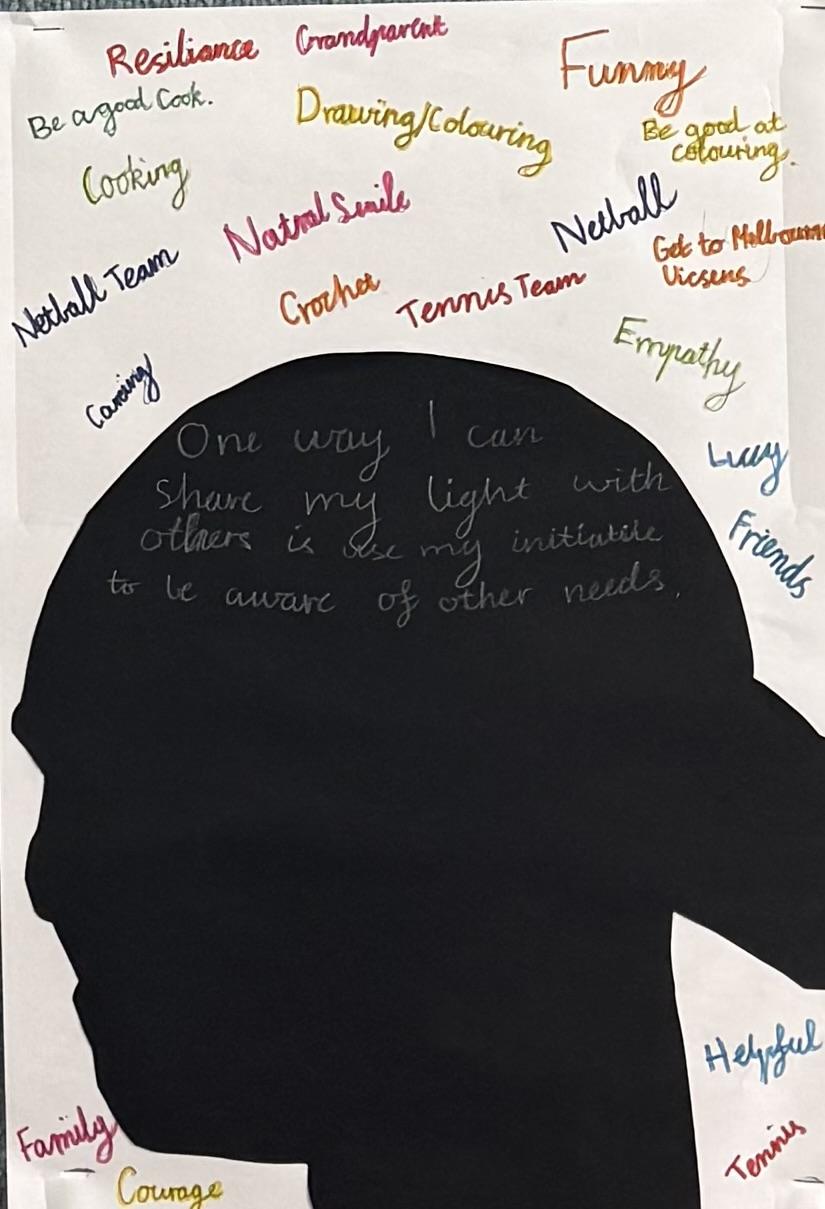 Resiliance
Grandparent
Funny
Be a good Cook.
Drawing/Colouring
Be good at
colouring.
Cooking
Natral Smile
Netball
Get to Mellbourne
Vicsens
Netball Team
Crochet
Tennis Team
Empathy
Caring
Lucy
Friends
One way I can
share my light with
others is use my initiative
to be aware of other needs.
Helpful
Family
Tennis
Courage